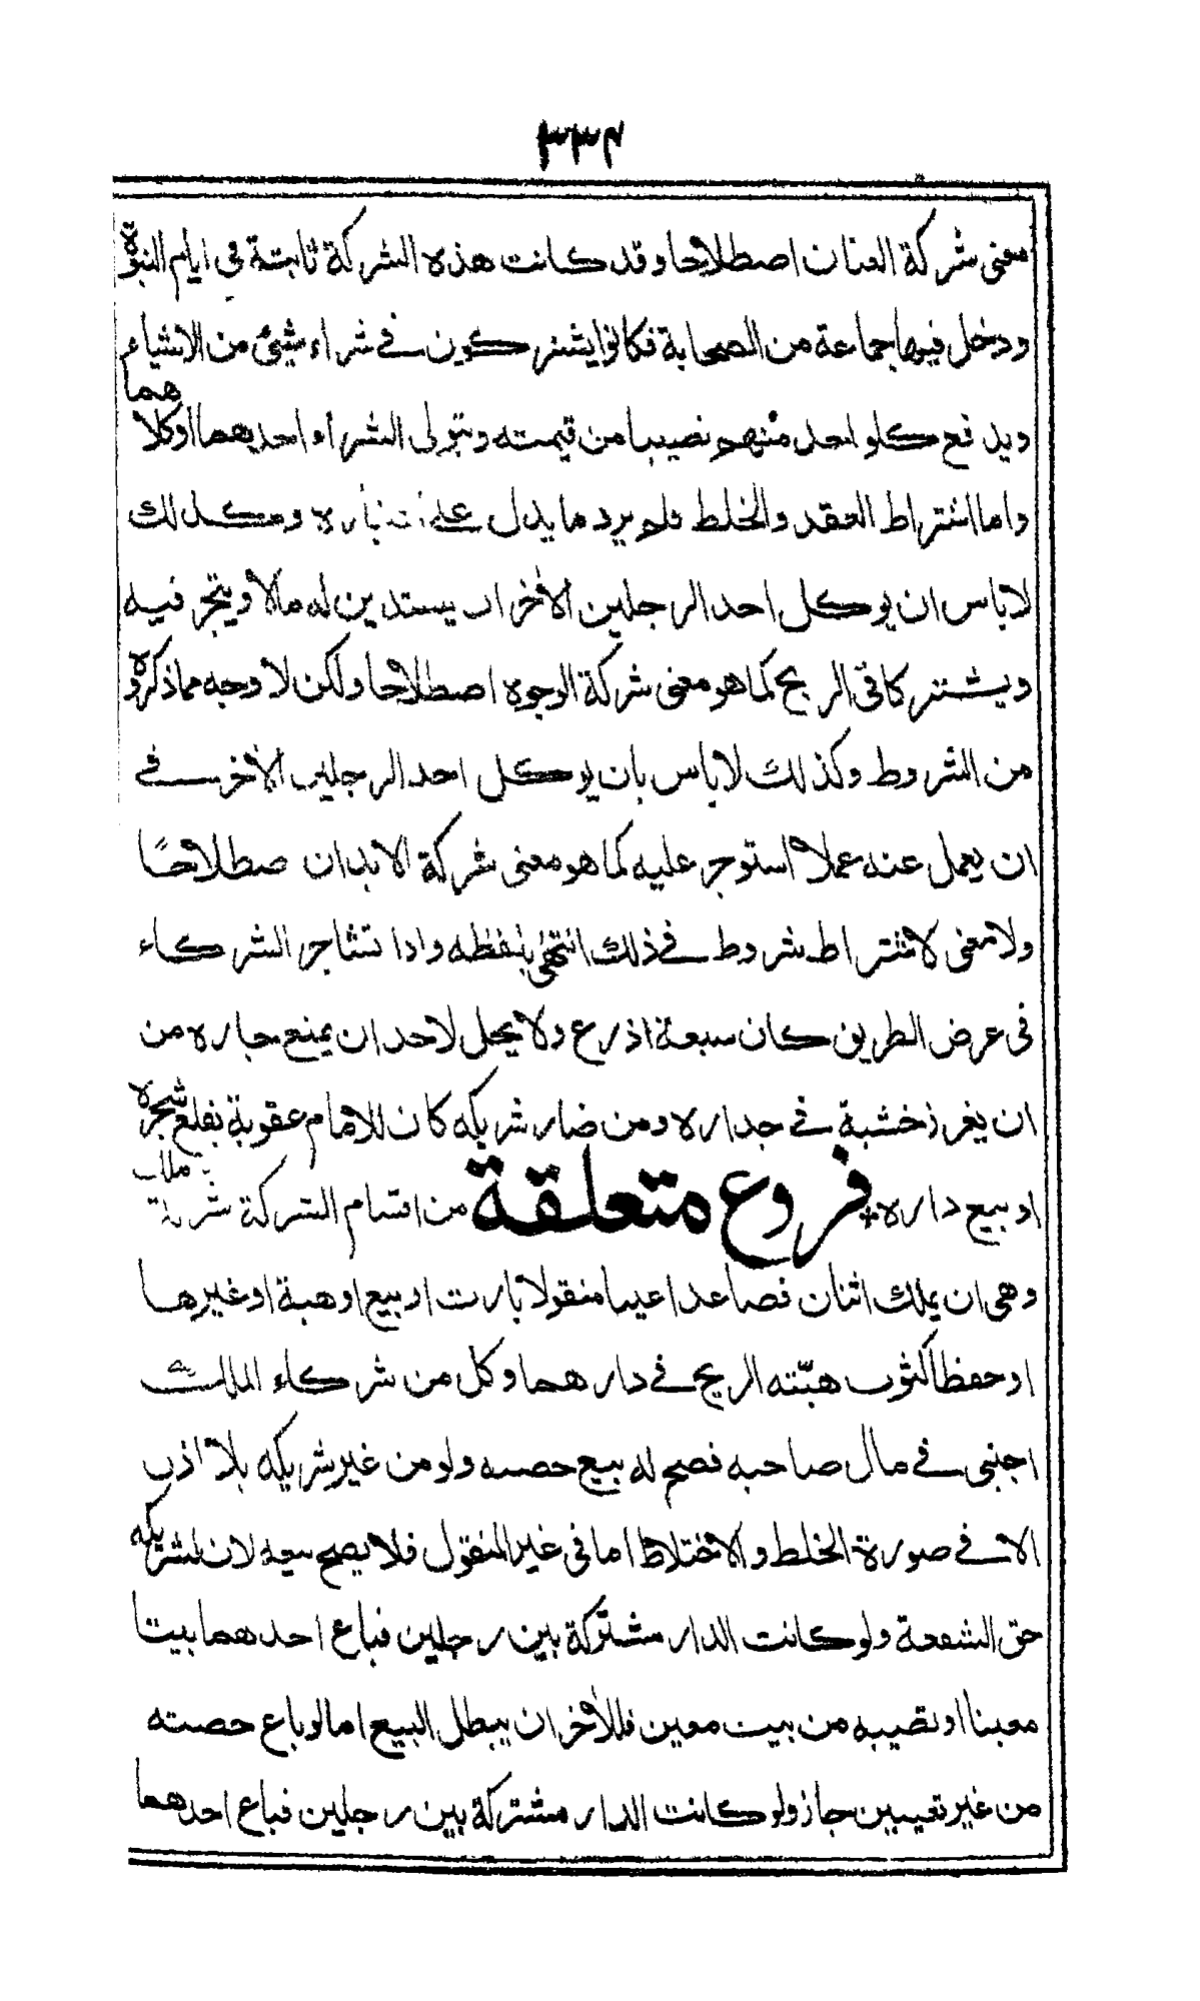 ٣٣٤
معنى شركة العنان اصطلاحا وقد كانت هذه الشركة ثابتة في ايام النبوة
ودخل فيها جماعة من الصحابة فكانوا يشتركون في شراء شيئ من الاشياء
ويدفع كل واحد منهم نصيبا من قيمته ويتولى الشراء احدهما او كلاهما
واما اشتراط العقد والخلط فلم يرد ما يدل على اعتباره وكذلك
لا باس ان يوكل احد الرجلين الأخر ان يستدين له مالا ويتجر فيه
ويشتركا في الربح كما هو معنى شركة الوجوه اصطلاحا ولكن لا وجه مما ذكروه
من الشروط وكذلك لا باس بان يوكل احد الرجلين الأخر في
ان يعمل عنه عملا استوجر عليه كما هو معنى شركة الابدان صطلاحًا
ولا معنى لاشتراط شروط في ذلك انتهى بلفظه واذا تشاجر الشركاء
في عرض الطريق كان سبعة اذرع ولا يحل لاحد ان يمنع جاره من
ان يغرز خشبة في جداره ومن ضار شريكه كان للامام عقوبة بقلع شجره
او بيع داره + فروع متعلقة من اقسام الشركة شركة ملك
وهي ان يملك اثنان فصاعدا عينا منقولا بارث او بيع او هبة او غيرها
او حفظا كثوب هبّته الريح في دارهما وكل من شركاء الملك
اجنبي في مال صاحبه فصح له بيع حصته ولو من غير شريكه بلا اذن
الا في صورة الخلط والاختلاط اما في غير المنقول فلا يصح بيعه لان لشريكه
حق الشفعة ولو كانت الدار مشتركة بين رجلين فباع احدهما بيتا
معينا او نصيبه من بيت معين فللأخر ان يبطل البيع اما لو باع حصته
من غير تعيين جاز ولو كانت الدار مشتركة بين رجلين فباع احدهما